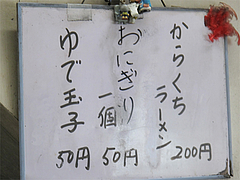 からくち
ラーメン
200円
おにぎり
一個
50円
ゆで玉子
50円